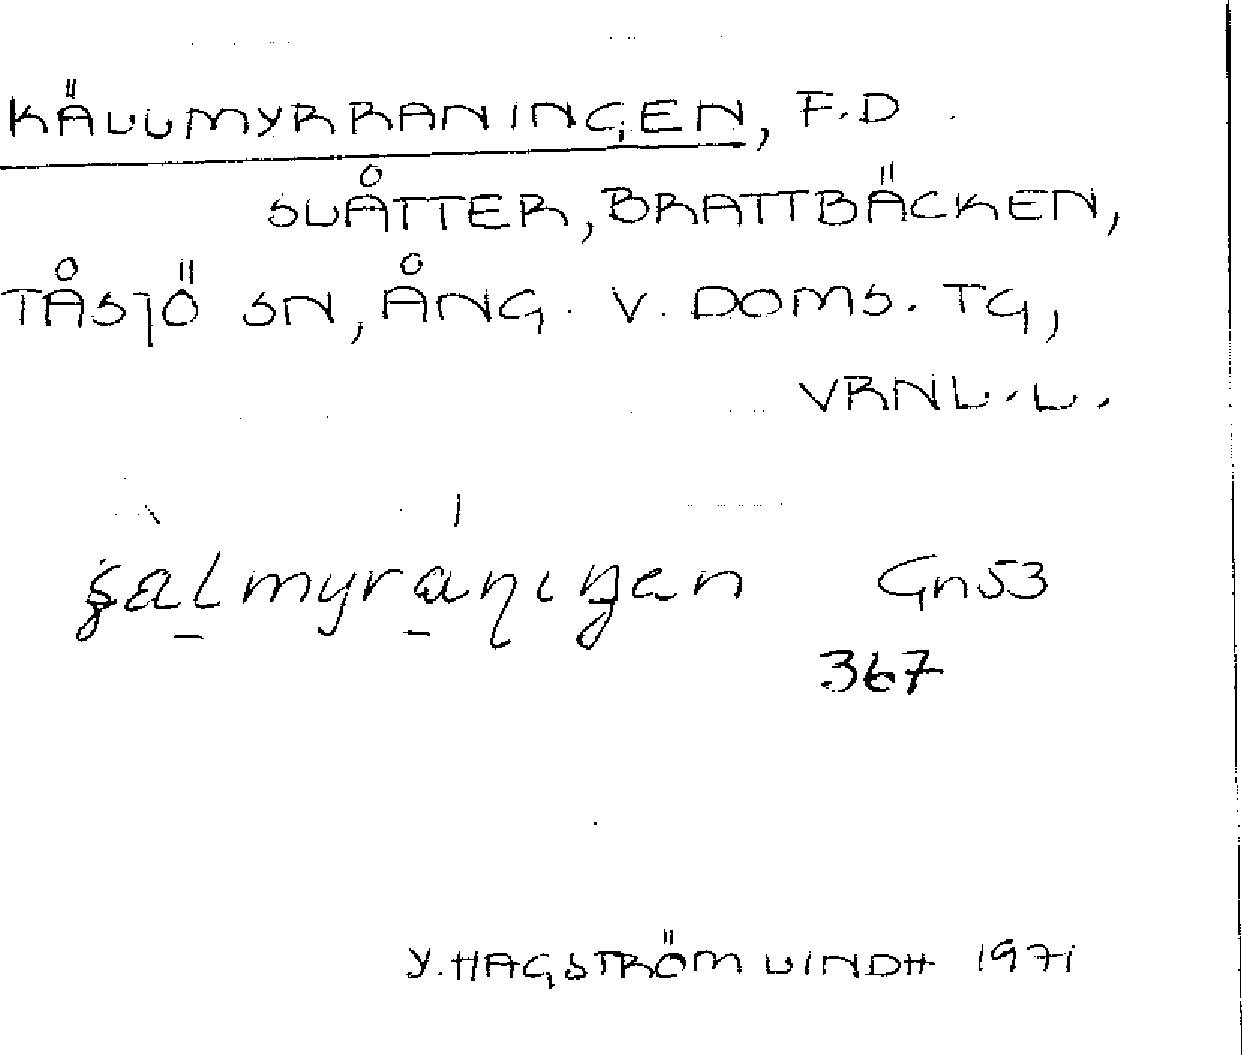 KÄLLMYRRANINGEN, F.D
SLÅTTER, BRATTBÄCKEN,
TÅSJÖ SN, ÅNG. V. DOMS. TG,
VRNL. L.
Gn53
367
Y. HAGSTRÖM LINDH 1971